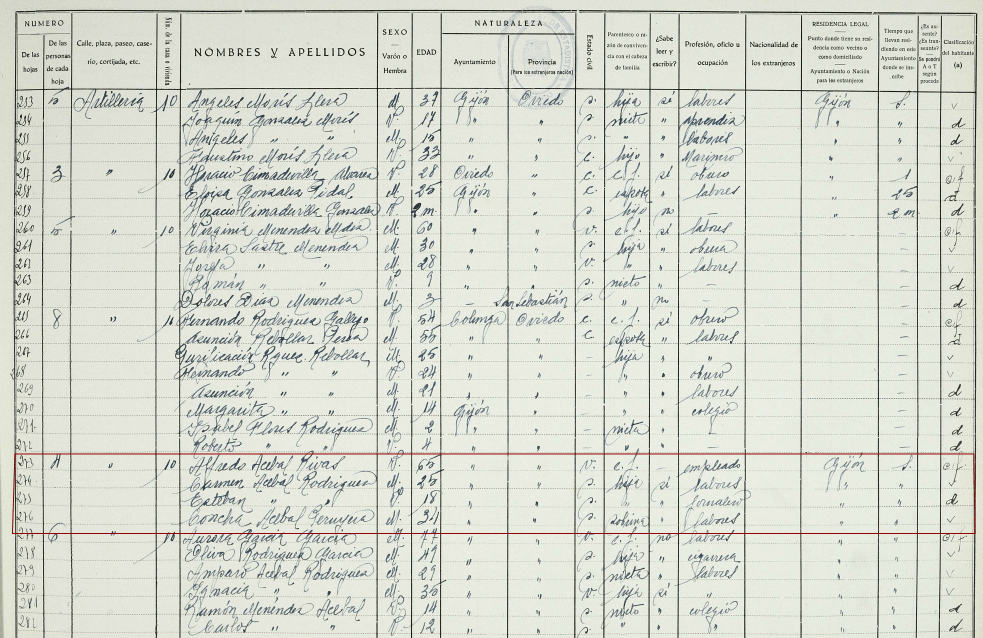 NUMERO
De las hojas
De las personas de cada hoja
Calle, plaza, paseo, case-
río, cortijada, etc.
Núm. de la casa o vivienda
NOMBRES Y APELLIDOS
SEXO
Varón o Hembra
EDAD
NATURALEZA
Ayuntamiento
Provincia
(Para los extranjeros nación)
Estado civil
Parentesco o ra-
zón de conviven-
cia con el cabeza
de familia
¿Sabe leer y escribir?
Profesión, oficio u
ocupación
Nacionalidad de
los extranjeros
RESIDENCIA LEGAL
Punto donde tiene su resi-
dencia como vecino o
como domiciliado
Ayuntamiento o Nación
para los extranjeros
Tiempo que
llevan resi-
diendo en este
Ayuntamiento
donde se ins-
cribe
¿Es au-
sente?
¿Es tran-
seunte?
Se pondrá
A o T
según
proceda
Clasificación
del habitante
(a)
253 5 Artillería 10 Angeles Morís Llera 37 Gijón Oviedo s. hija sí labores Gijón v
254 Joaquín Gonzalez Morís V. 17 " " s. nieto " aprendiz " " d
255 Angeles " " 15 " " s. " " labores " " d
256 Faustino Morís Llera V. 33 " " c. hijo " Marinero " " v
257 3 " 10 Horacio Cimadevilla V. 28 Oviedo " c. c.f. sí obrero " 1 c/f
258 Eloisa Gonzalez Vidal 25 Gijón " c. esposa " labores " 25
259 Horacio Cimadevilla Gonzalez V. 2 m. " " s. hijo no — " 2 m. d
260 5 " 10 Virginia Menendez 60 " " v. c.f. sí labores — c/f
261 Elvira Sastre Menendez 30 " " s. hija " obrera — v
" " 28 " " v. " " labores — v
263 Román " " V. 9 " " s. nieto " — — d
264 Dolores Diaz Menendez 3 — San Sebastián s. " no — — d
265 8 " 10 Fernando Rodriguez Gallego V. 54 Colunga Oviedo c. c.f. sí obrero — c/f
266 Asunción Rebollar 55 " " c esposa " labores —
267 Purificación Rguez. Rebollar 25 " " — hija " " — v
268 Fernando " " V. 24 " " — " " obrero — v
269 Asunción " " 21 " " — " " labores d
270 Margarita " " 14 Gijón " — " " colegio — d
271 Isabel Flores Rodriguez 2 " " — nieta " — — d
272 Roberto " " V. 4 " " — " " — — d
273 4 " 10 Alfredo Acebal Rivas V. 65 " " v. c.f. — empleado Gijón c/f
274 Carmen Acebal Rodriguez 25 " " s. hija sí labores " "
275 Esteban " " 18 " " s. " " jornalero " " d
276 Concha Acebal 34 " " s. sobrina " labores " " v
277 6 " 10 Aurora Garcia Garcia 77 " " v. c.f. no labores " " c/f
278 Oliva Rodriguez Garcia " " s. hija " cigarrera " " v
279 Amparo Acebal Rodriguez 29 " " s. nieta " labores " " v
280 Ignacia " " " " v. hija sí " " "
281 Ramón Menendez Acebal V. 14 " " s. nieto " colegio " " d
282 Carlos " " V. 12 " " s. " " " " " d